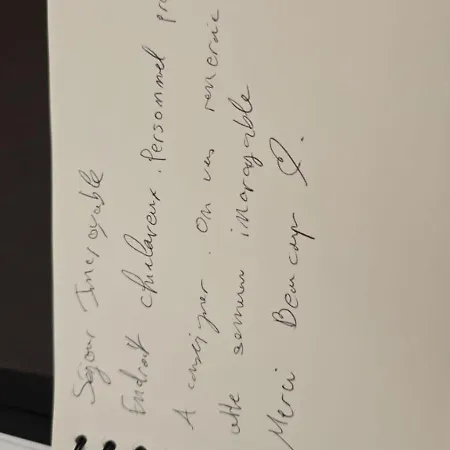 Séjour Incroyable
Endroit chaleureux. Personnel pr
A consigner. On vus remercie
cette semaine incroyable
Merci Beaucoup